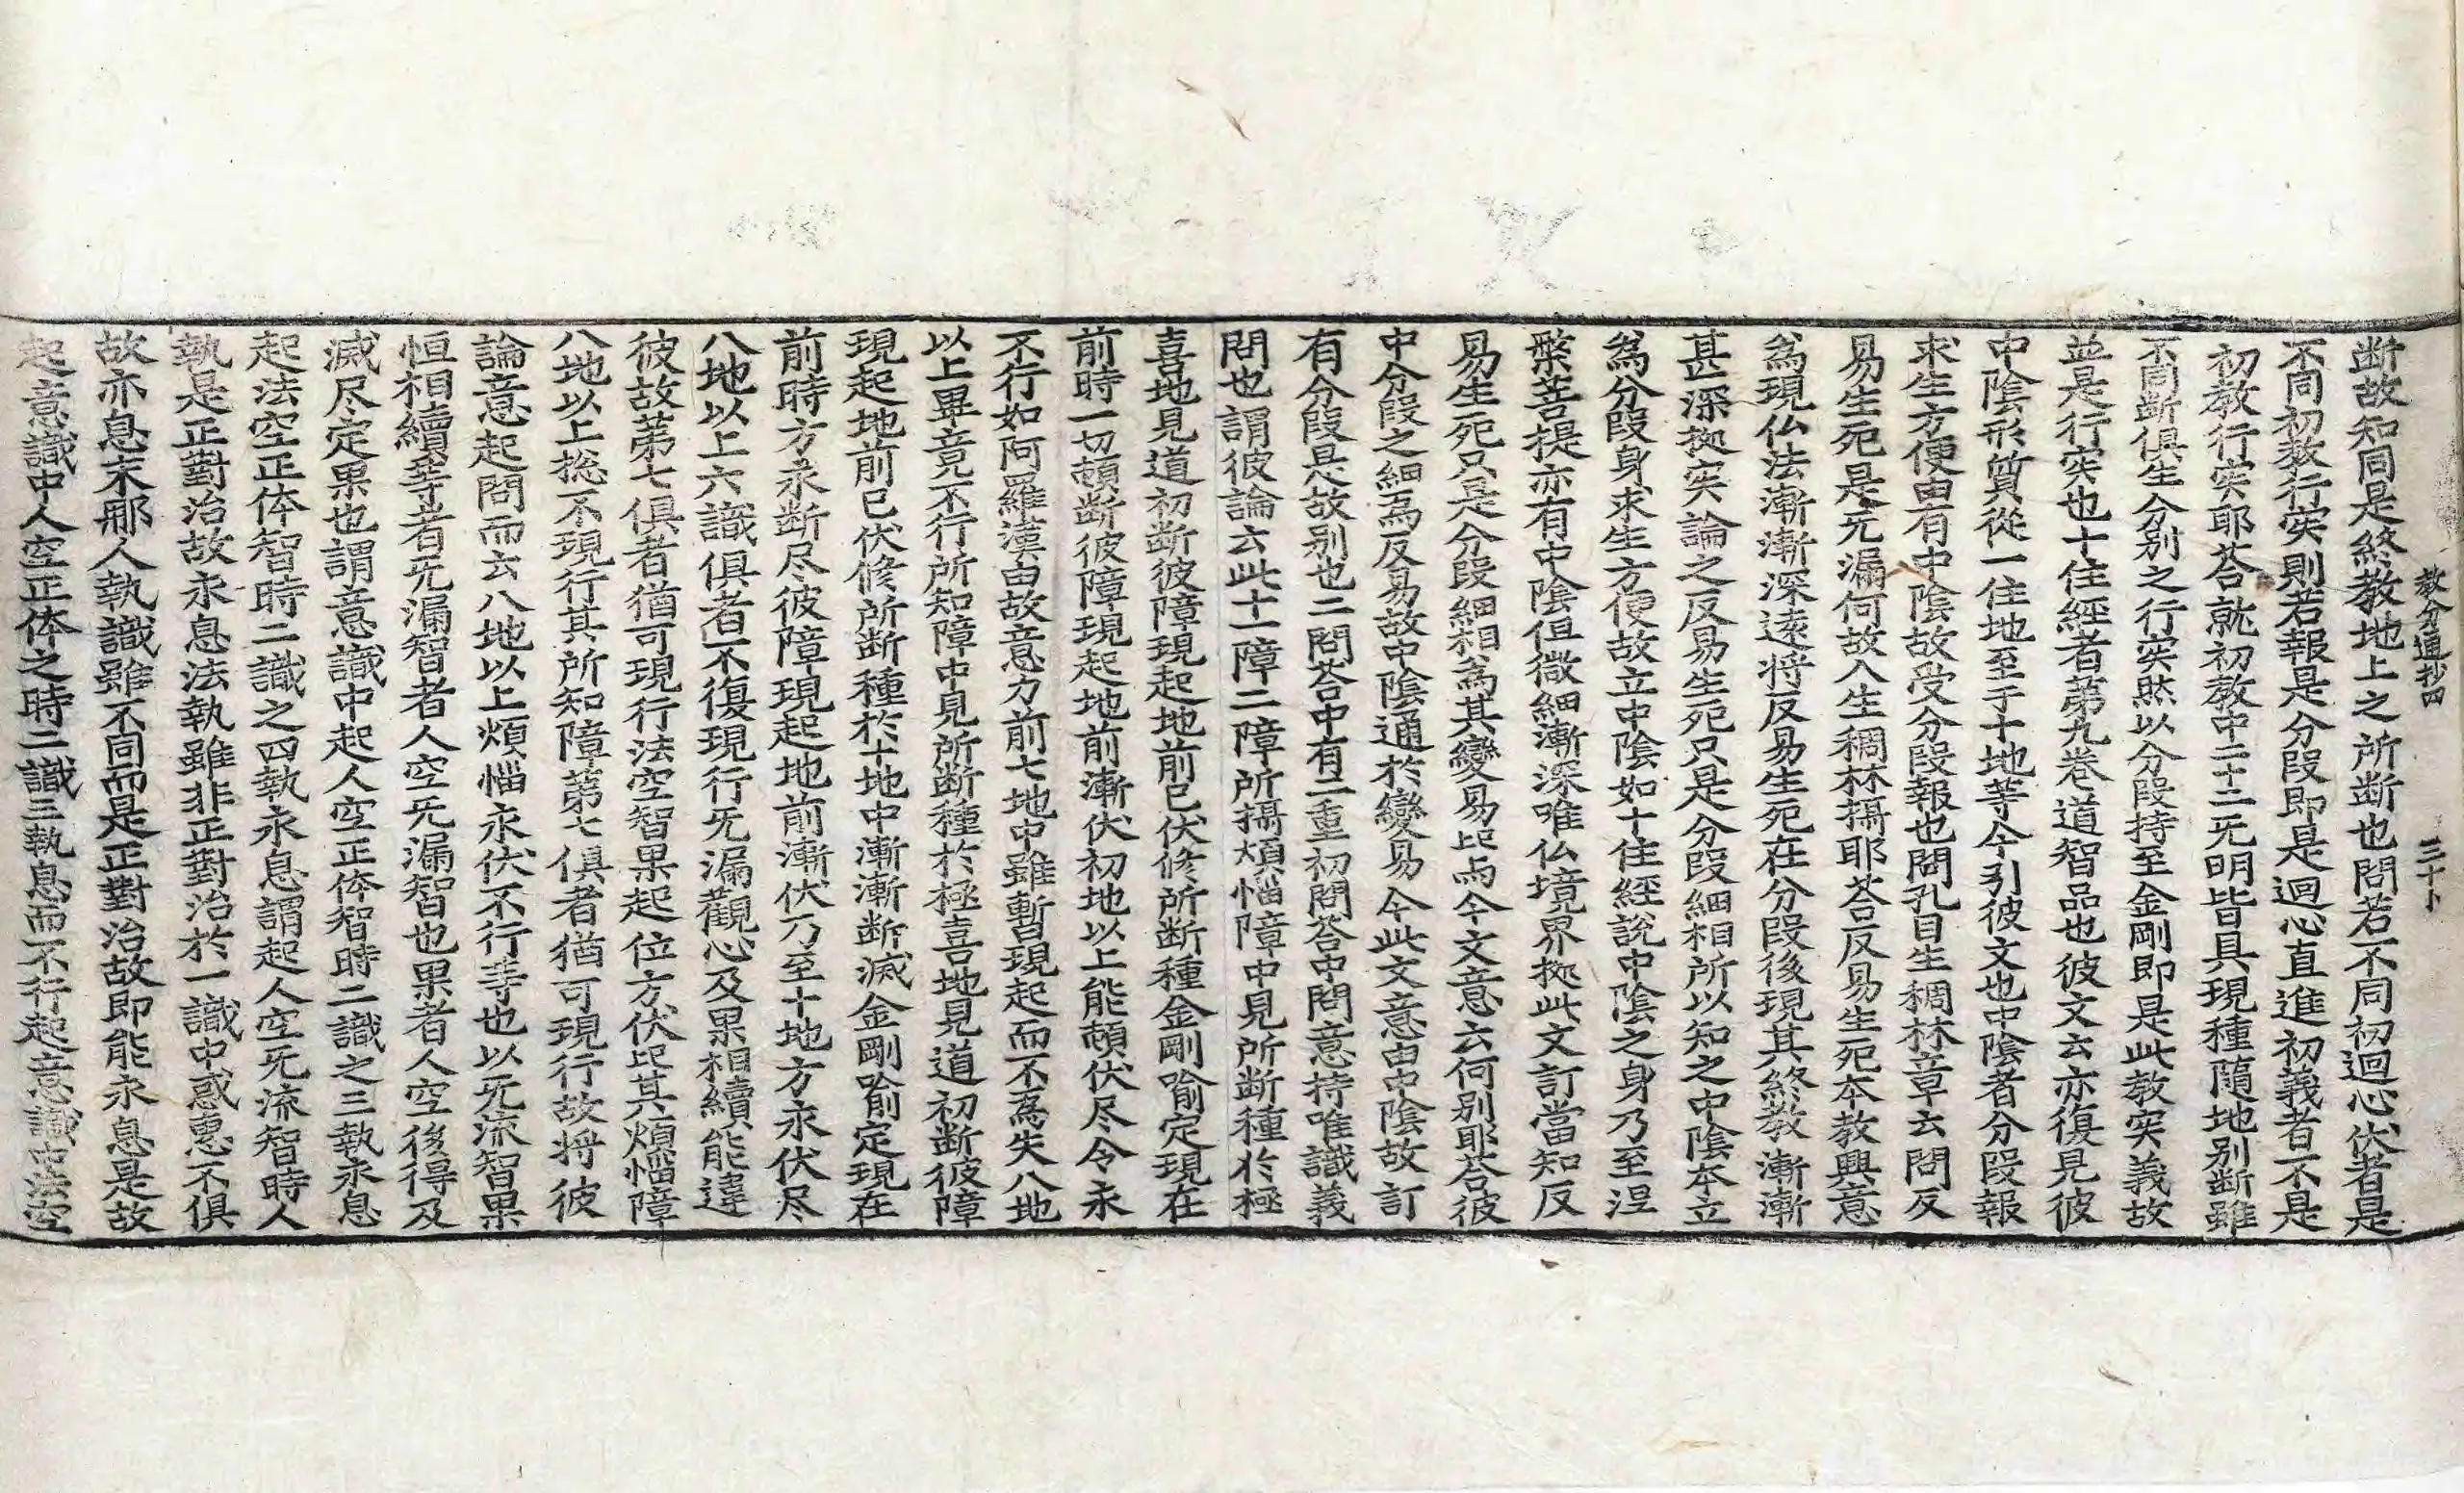 教分通抄四　三十卜
断故知同是終教地上之所断也問若不同初迴心伏者是
不同初教行宲則若報是分段即是迴心直進初義者不是
初教行宲耶荅就初教中二十二旡明皆具現種隨地別断雖
不同断俱生分別之行宲㷊以分段持至金剛即是此教宲義故
並是行宲也十住經者苐九卷道智品也彼文云亦復見彼
中陰形質從一住地至于十地等今引彼文也中陰者分段報
求生方便由有中陰故受分段報也問孔目生稠林章云問反
易生死是旡漏何故入生稠林攝耶荅反易生死本教興意
為現仏法漸漸深遠将反易生死在分段後現其終教漸漸
甚深拠宲論之反易生死只是分段細相所以知之中陰本立
為分段身求生方便故立中陰如十住經說中陰之身乃至涅
槃菩提亦有中陰但微細漸深唯仏境界拠此文訂當知反
易生死只是分段細相為其變易此焉今文意云何別耶荅彼
中分段之細焉反易故中陰通於變易今此文意由中陰故訂
有分段是故別也二問荅中有二重初問荅中問意持唯識義
問也謂彼論云此十一障二障所攝煩惱障中見所断種於極
喜地見道初断彼障現起地前已伏修所断種金剛喻定現在
前時一切頓断彼障現起地前漸伏初地以上能頓伏尽令永
不行如阿羅漢由故意力前七地中雖暫現起而不為失八地
以上畢竟不行所知障中見所断種於極喜地見道初断彼障
現起地前已伏修所断種於十地中漸漸断滅金剛喻定現在
前時方永断尽彼障現起地前漸伏乃至十地方永伏尽
八地以上六識俱者不復現行旡漏觀心及果相續能違
彼故苐七俱者猶可現行法空智果起位方伏㫖其煩惱障
八地以上捴不現行其所知障第七俱者猶可現行故将彼
論意起問而云八地以上煩惱永伏不行等也以旡流智果
恒相續等者旡漏智者人空旡漏智也果者人空後得及
滅尽定果也謂意識中起人空正体智時二識之三執永息
起法空正体智時二識之四執永息謂起人空旡流智時人
執是正對治故永息法執雖非正對治於一識中惑惠不俱
故亦息末那人執識雖不同而是正對治故即能永息是故
起意識中人空正体之時二識三執息而不行起意識中法空